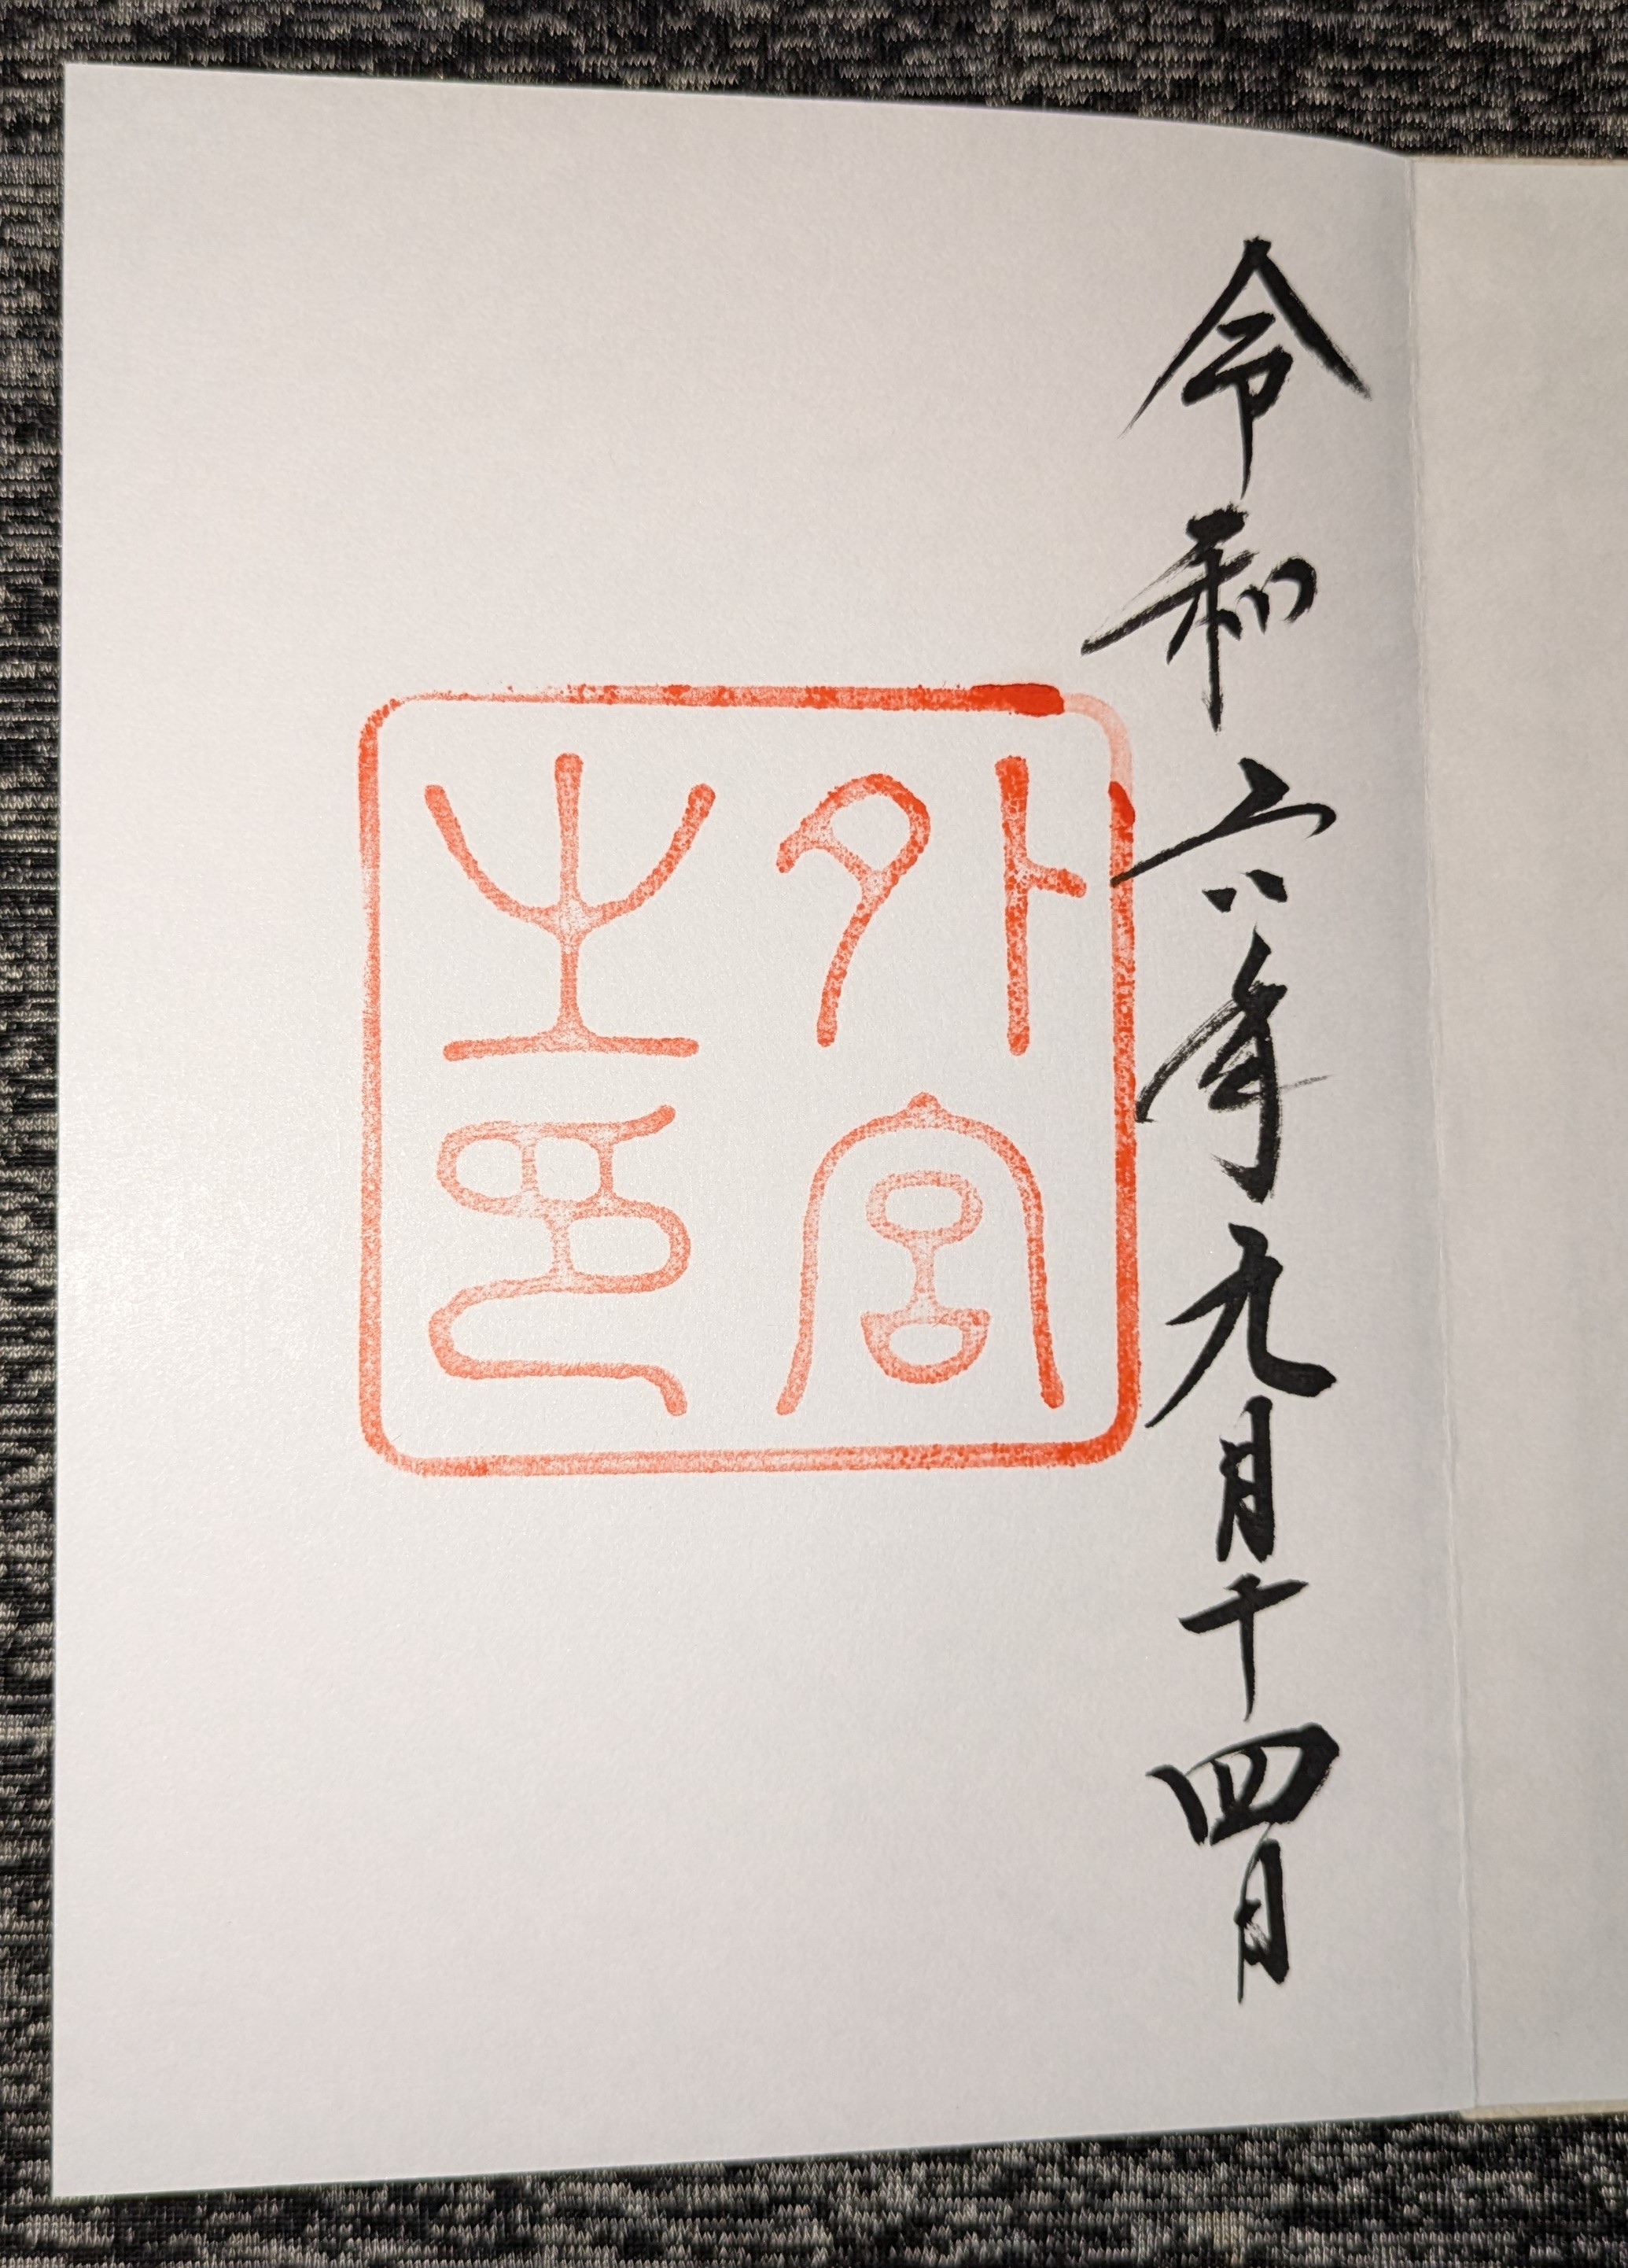 令和六年九月十四日
外宮
之印